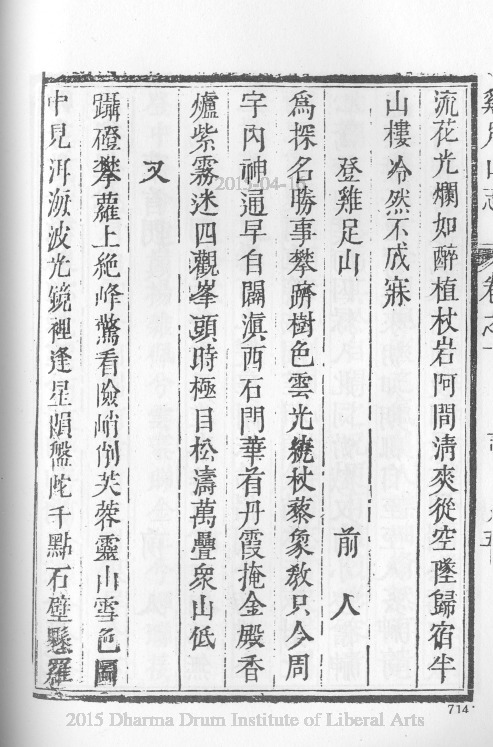 流花光爛如醉植杖岩阿間清爽從空墜歸宿半
山樓冷然不成寐
登雞足山 前人
為探名勝事攀躋樹色雲光繞杖藜象教只今周
宇內神通早自闢滇西石門華着丹霞掩金殿香
爐紫霧迷四觀峯頭時極目松濤萬疊衆山低
又
躡磴攀蘿上絕峰驚看險峭削芙蓉靈山雪色圖
中見洱海波光鏡裡逢星隕盤陀千點石壁懸羅
714
2015-04-1
2015 Dharma Drum Institute of Liberal Arts